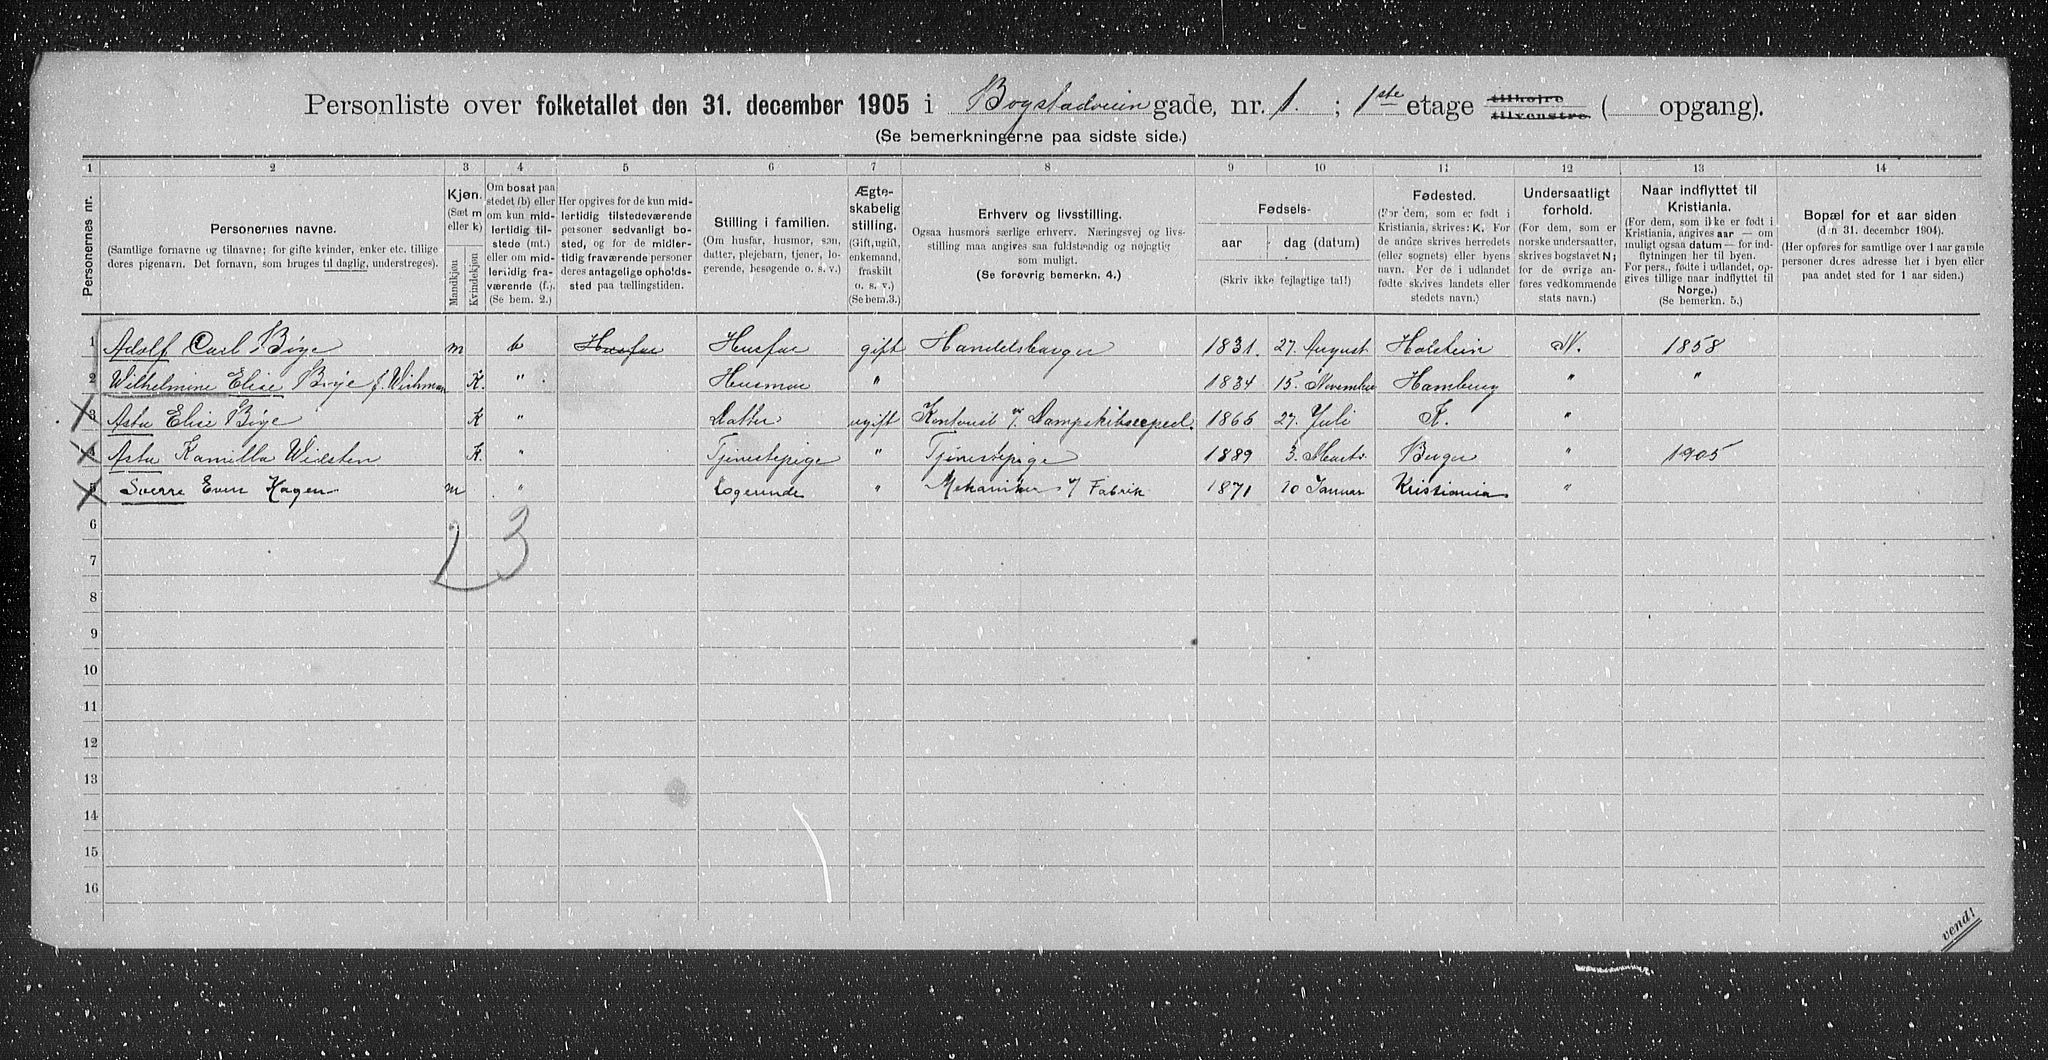 Personliste over folketallet den 31. december 1905 i Bogstadveien gade, nr. 1. ; 1ste etage tilhøjre tilvenstre ( opgang).
(Se bemerkningerne paa sidste side.)
1 2 3 4 5 6 7 8 9 10 11 12 13 14
Personernes nr.
Personernes navne.
(Samtlige fornavne og tilnavne; for gifte kvinder, enker etc. tillige deres pigenavn. Det fornavn, som bruges til daglig, understreges).
Kjøn.
(Sæt m eller k).
Mandkjøn
Kvindekjøn
Om bosat paa stedet (b) eller om kun midlertidig tilstede (mt.) eller om midlertidig fraværende (f.).
(Se bem. 2.)
Her opgives for de kun midlertidig tilstedeværende personer sedvanligt bosted, og for de midlertidig fraværende personer deres antagelige opholdssted paa tællingstiden.
Stilling i familien.
(Om husfar, husmor, søn, datter, plejebarn, tjener, logerende, besøgende o. s. v.)
Ægteskabelig stilling.
(Gift, ugift, enkemand, fraskilt o. s. v.)
(Se bem. 3.)
Erhverv og livsstilling.
Ogsaa husmors særlige erhverv. Næringsvej og livsstilling maa angives saa fuldstændig og nøjagtig som muligt.
(Se forøvrig bemerkn. 4.)
Fødsels-
aar dag (datum)
(Skriv ikke fejlagtige tal!)
Fødested.
(For dem, som er født i Kristiania, skrives: K. For de andre skrives herredets (eller sognets) eller byens navn. For de i udlandet fødte skrives landets eller stedets navn.)
Undersaatligt forhold.
(For dem, som er norske undersaatter, skrives bogstavet N; for de øvrige anføres vedkommende stats navn.)
Naar indflyttet til Kristiania.
(For dem, som ikke er født i Kristiania, angives aar — om muligt ogsaa datum — for indflytningen her til byen. For pers., fødte i udlandet, opgives tillige naar indflyttet til Norge.)
(Se bemerkn. 5.)
Bopæl for et aar siden
(den 31. december 1904).
(Her opføres for samtlige over 1 aar gamle personer deres adresse her i byen eller paa andet sted for 1 aar siden.)
1 Adolf Carl Böye m b Husfar Husfar gift Handelsborger 1831. 27. August Holstein N. 1858
2 Wilhelmine Elise Böye f. Wichman K. " Husmor " 1834 15. November Hamburg " "
3 Asta Elise Böye K " Datter ugift Kontorist v/ Dampskibsexped. 1865 27. Juli K. "
4 Asta Kamilla K. " Tjenestepige " Tjenestepige 1889 3. Marts Bergen " 1905
5 Sverre Even Hagen m " Logerende " Mekaniker v/ Fabrik 1871 10 Januar Kristiania "
6
2 3
7
8
9
10
11
12
13
14
15
16
vend!